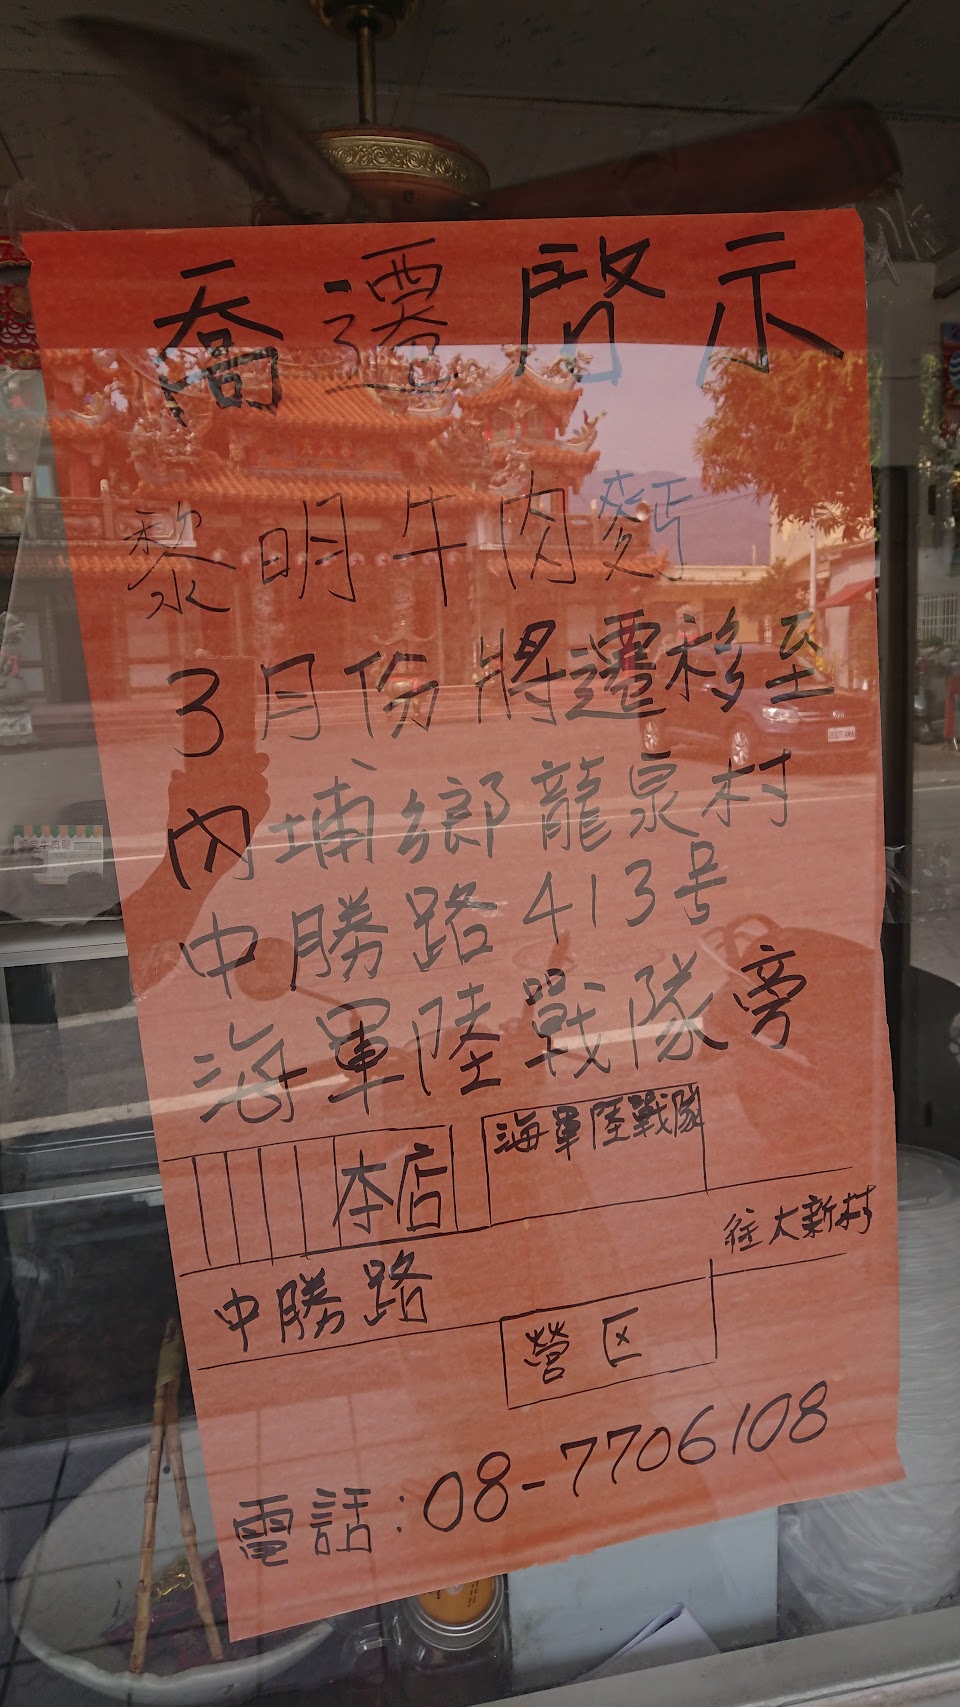 喬遷啓示
黎明牛肉麵
3月份將遷移至
內埔鄉龍泉村
中勝路413号
海軍陸戰隊旁
本店
海軍陸戰隊
往大新村
中勝路
營区
電話:08-7706108